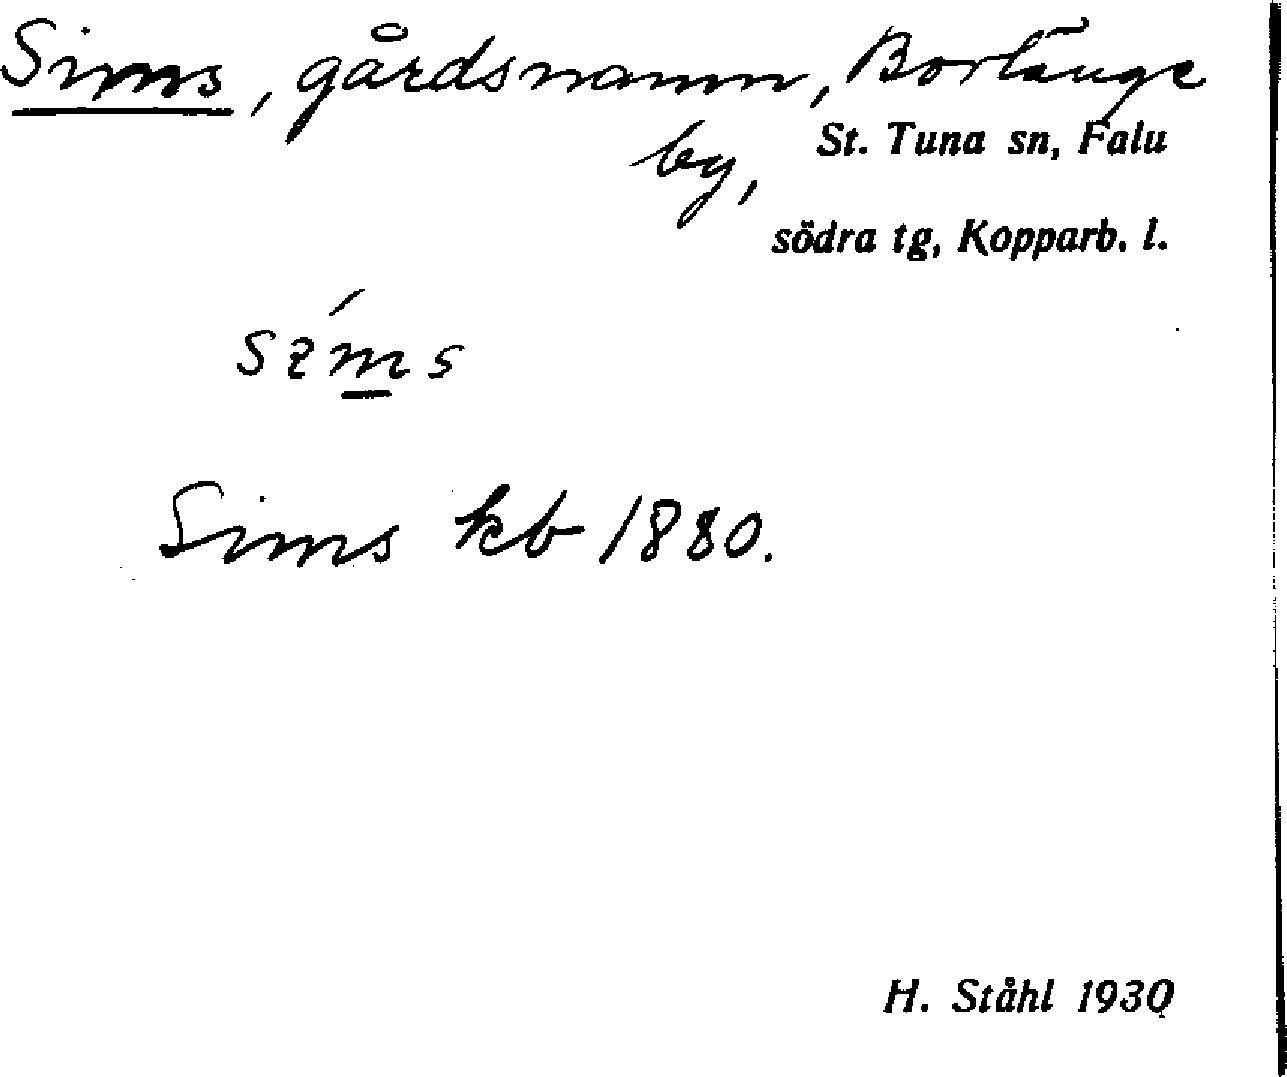 Sims, gårdsnamn, Borlänge
by, St. Tuna sn, Falu
södra tg, Kopparb. l.
Sims kb 1880.
H. Ståhl 1930